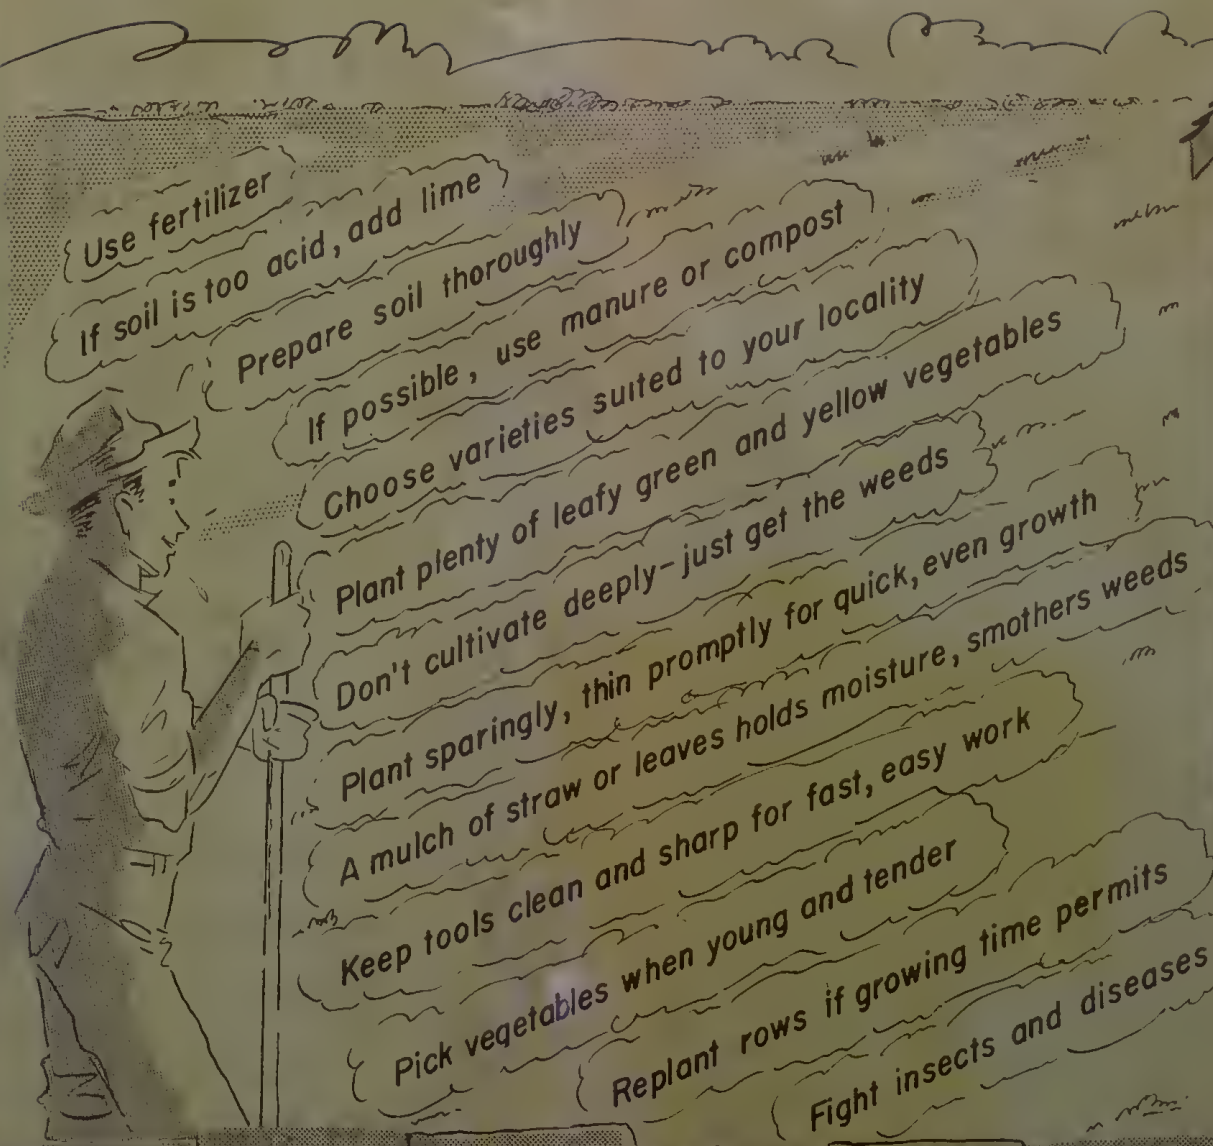 Use fertilizer
If soil is too acid, add lime
Prepare soil thoroughly
If possible, use manure or compost
Choose varieties suited to your locality
Plant plenty of leafy green and yellow vegetables
Don't cultivate deeply-just get the weeds
Plant sparingly, thin promptly for quick, even growth
A mulch of straw or leaves holds moisture, smothers weeds
Keep tools clean and sharp for fast, easy work
Pick vegetables when young and tender
Replant rows if growing time permits
Fight insects and diseases